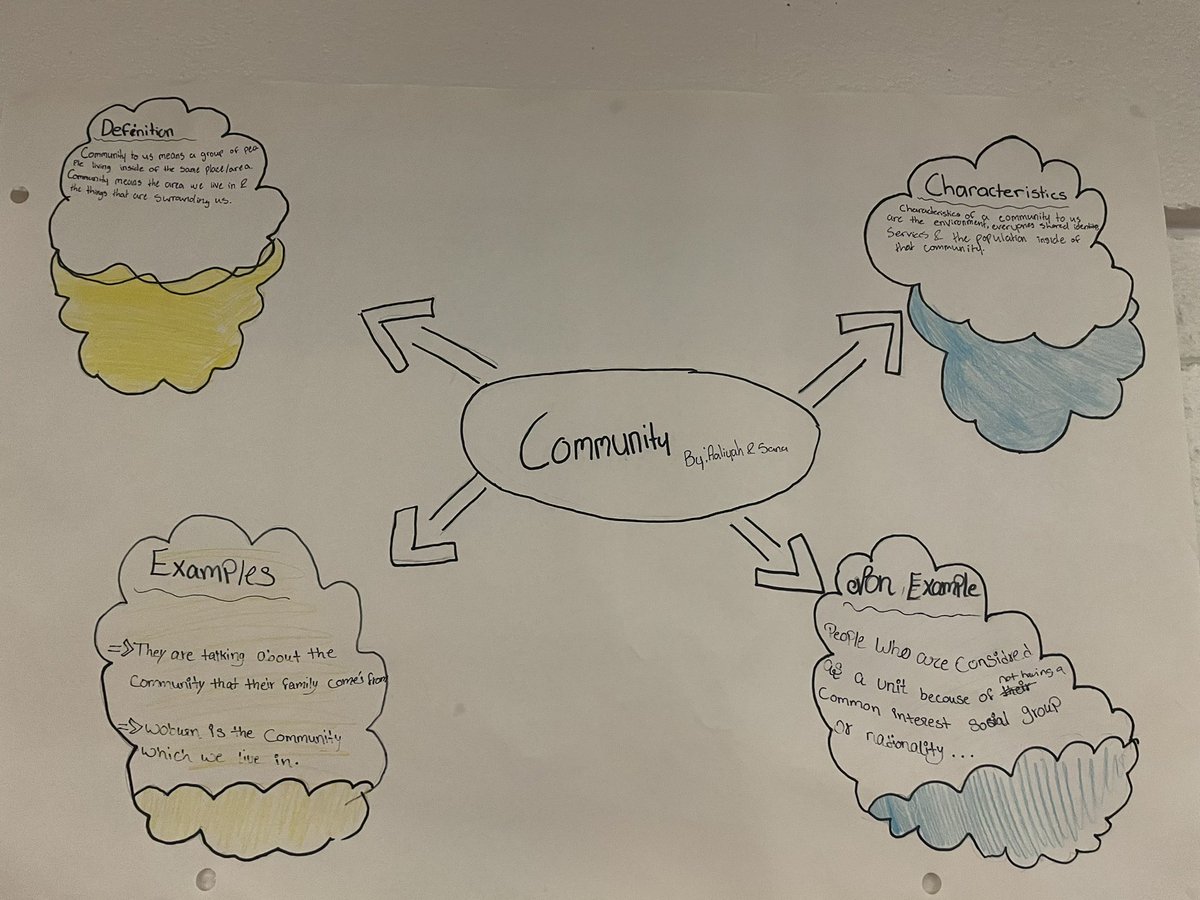 Definition
Community to us means a group of peo
ple living inside of the same place/area.
Community means the area we live in &
the things that are surrounding us.
Characteristics
Characteristics of a community to us
are the environment, everyones shared identity,
Services & the population inside of
that community.
Community By: Aaliyah & Sana
Examples
=> They are talking about the
Community that their family come's from
=> Woburn is the Community
which we live in.
Non Example
People who are considred
as a unit becouse of not having a
Common interest social group
or nationality ...